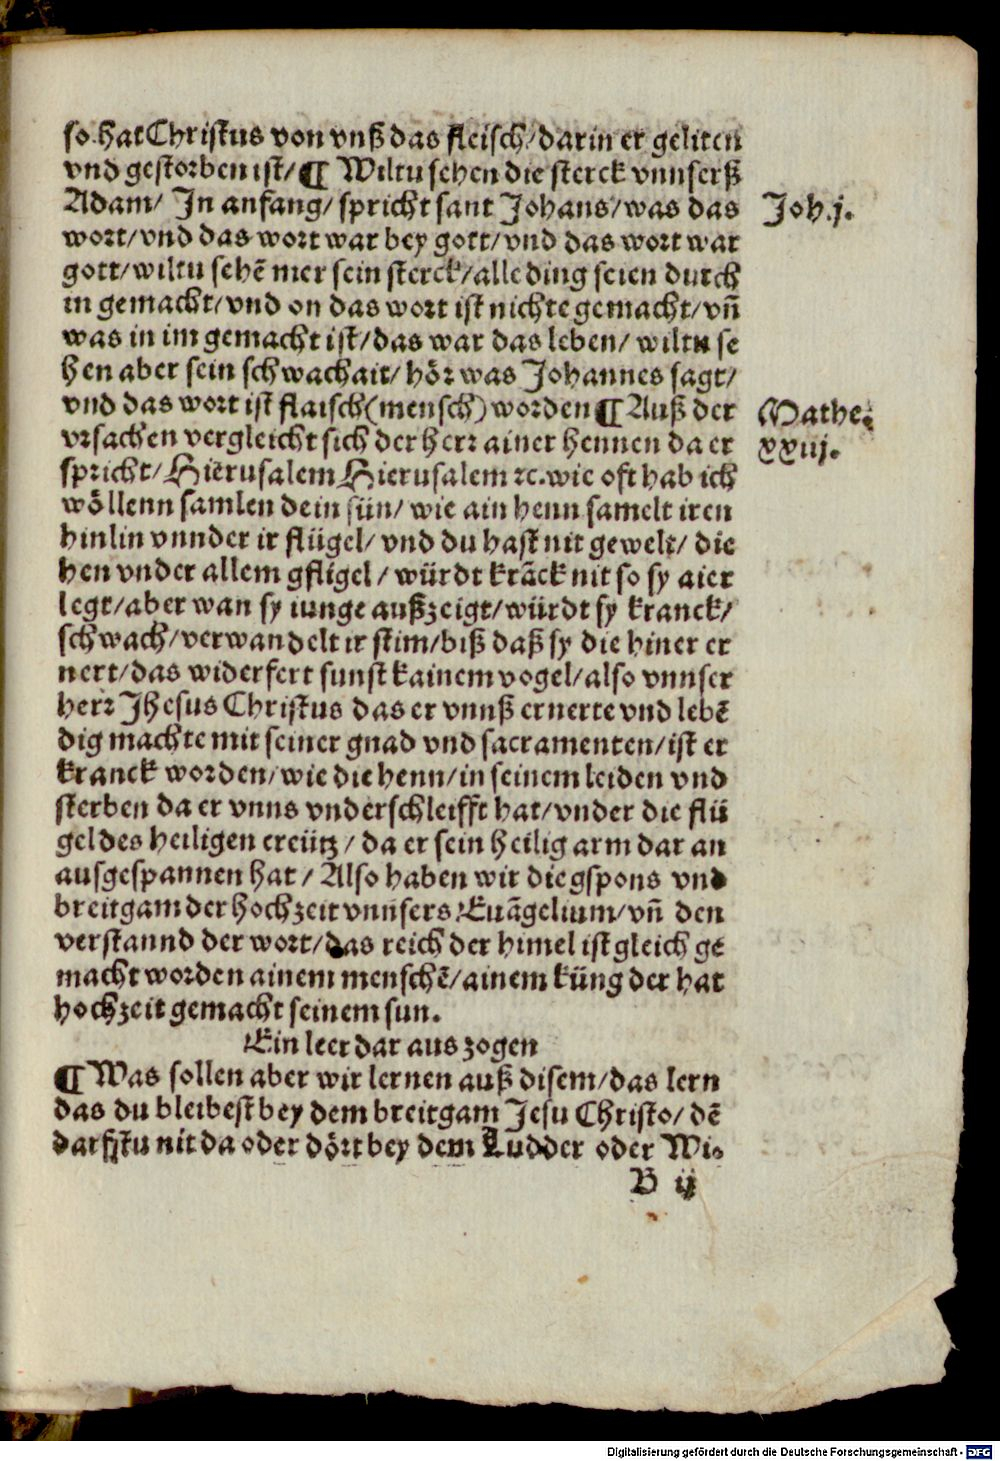 so hat Christus von vnß das fleisch/ darin er geliten
vnd gestorben ist/ ¶ Wiltu sehen die sterck vnnserß
Adam/ In anfang/ spricht sant Johans/ was das
Joh.j.
wort/ vnd das wort war bey gott/ vnd das wort war
gott/ wiltu sehē mer sein sterck/ alle ding seien durch
in gemacht/ vnd on das wort ist nichte gemacht/ vn̄
was in im gemacht ist/ das war das leben/ wiltu se
hen aber sein schwachait/ hör was Johannes sagt/
vnd das wort ist flaisch (mensch) worden ¶ Auß der
Mathe.
vrsachen vergleicht sich der herr ainer hennen da er
xxiij.
spricht/ Hierusalem Hierusalem ꝛc. wie oft hab ich
wöllenn samlen dein sün/ wie ain henn samelt iren
hinlin vnnder ir flügel/ vnd du hast nit gewelt/ die
hen vnder allem gfligel/ würdt krāck nit so sy aier
legt/ aber wan sy iunge außzeigt/ würdt sy kranck/
schwach/ verwandelt ir stim/ biß daß sy die hiner er
nert/ das widerfert sunst kainem vogel/ also vnnser
herr Jhesus Christus das er vnnß ernerte vnd lebē
dig machte mit seiner gnad vnd sacramenten/ ist er
kranck worden/ wie die henn/ in seinem leiden vnd
sterben da er vnns vnderschleifft hat/ vnder die flü
gel des heiligen creütz/ da er sein heilig arm dar an
ausgespannen hat/ Also haben wir die gspons vnd
breitgam der hochzeit vnnsers Euāgelium/ vn̄ den
verstannd der wort/ das reich der himel ist gleich ge
macht worden ainem menschē/ ainem küng der hat
hochzeit gemacht seinem sun.
Ein leer dar aus zogen
¶ Was sollen aber wir lernen auß disem/ das lern
das du bleibest bey dem breitgam Jesu Christo/ dē
darfstu nit da oder dört bey dem Ludder oder Wi-
B ij
Digitalisierung gefördert durch die Deutsche Forschungsgemeinschaft - DFG